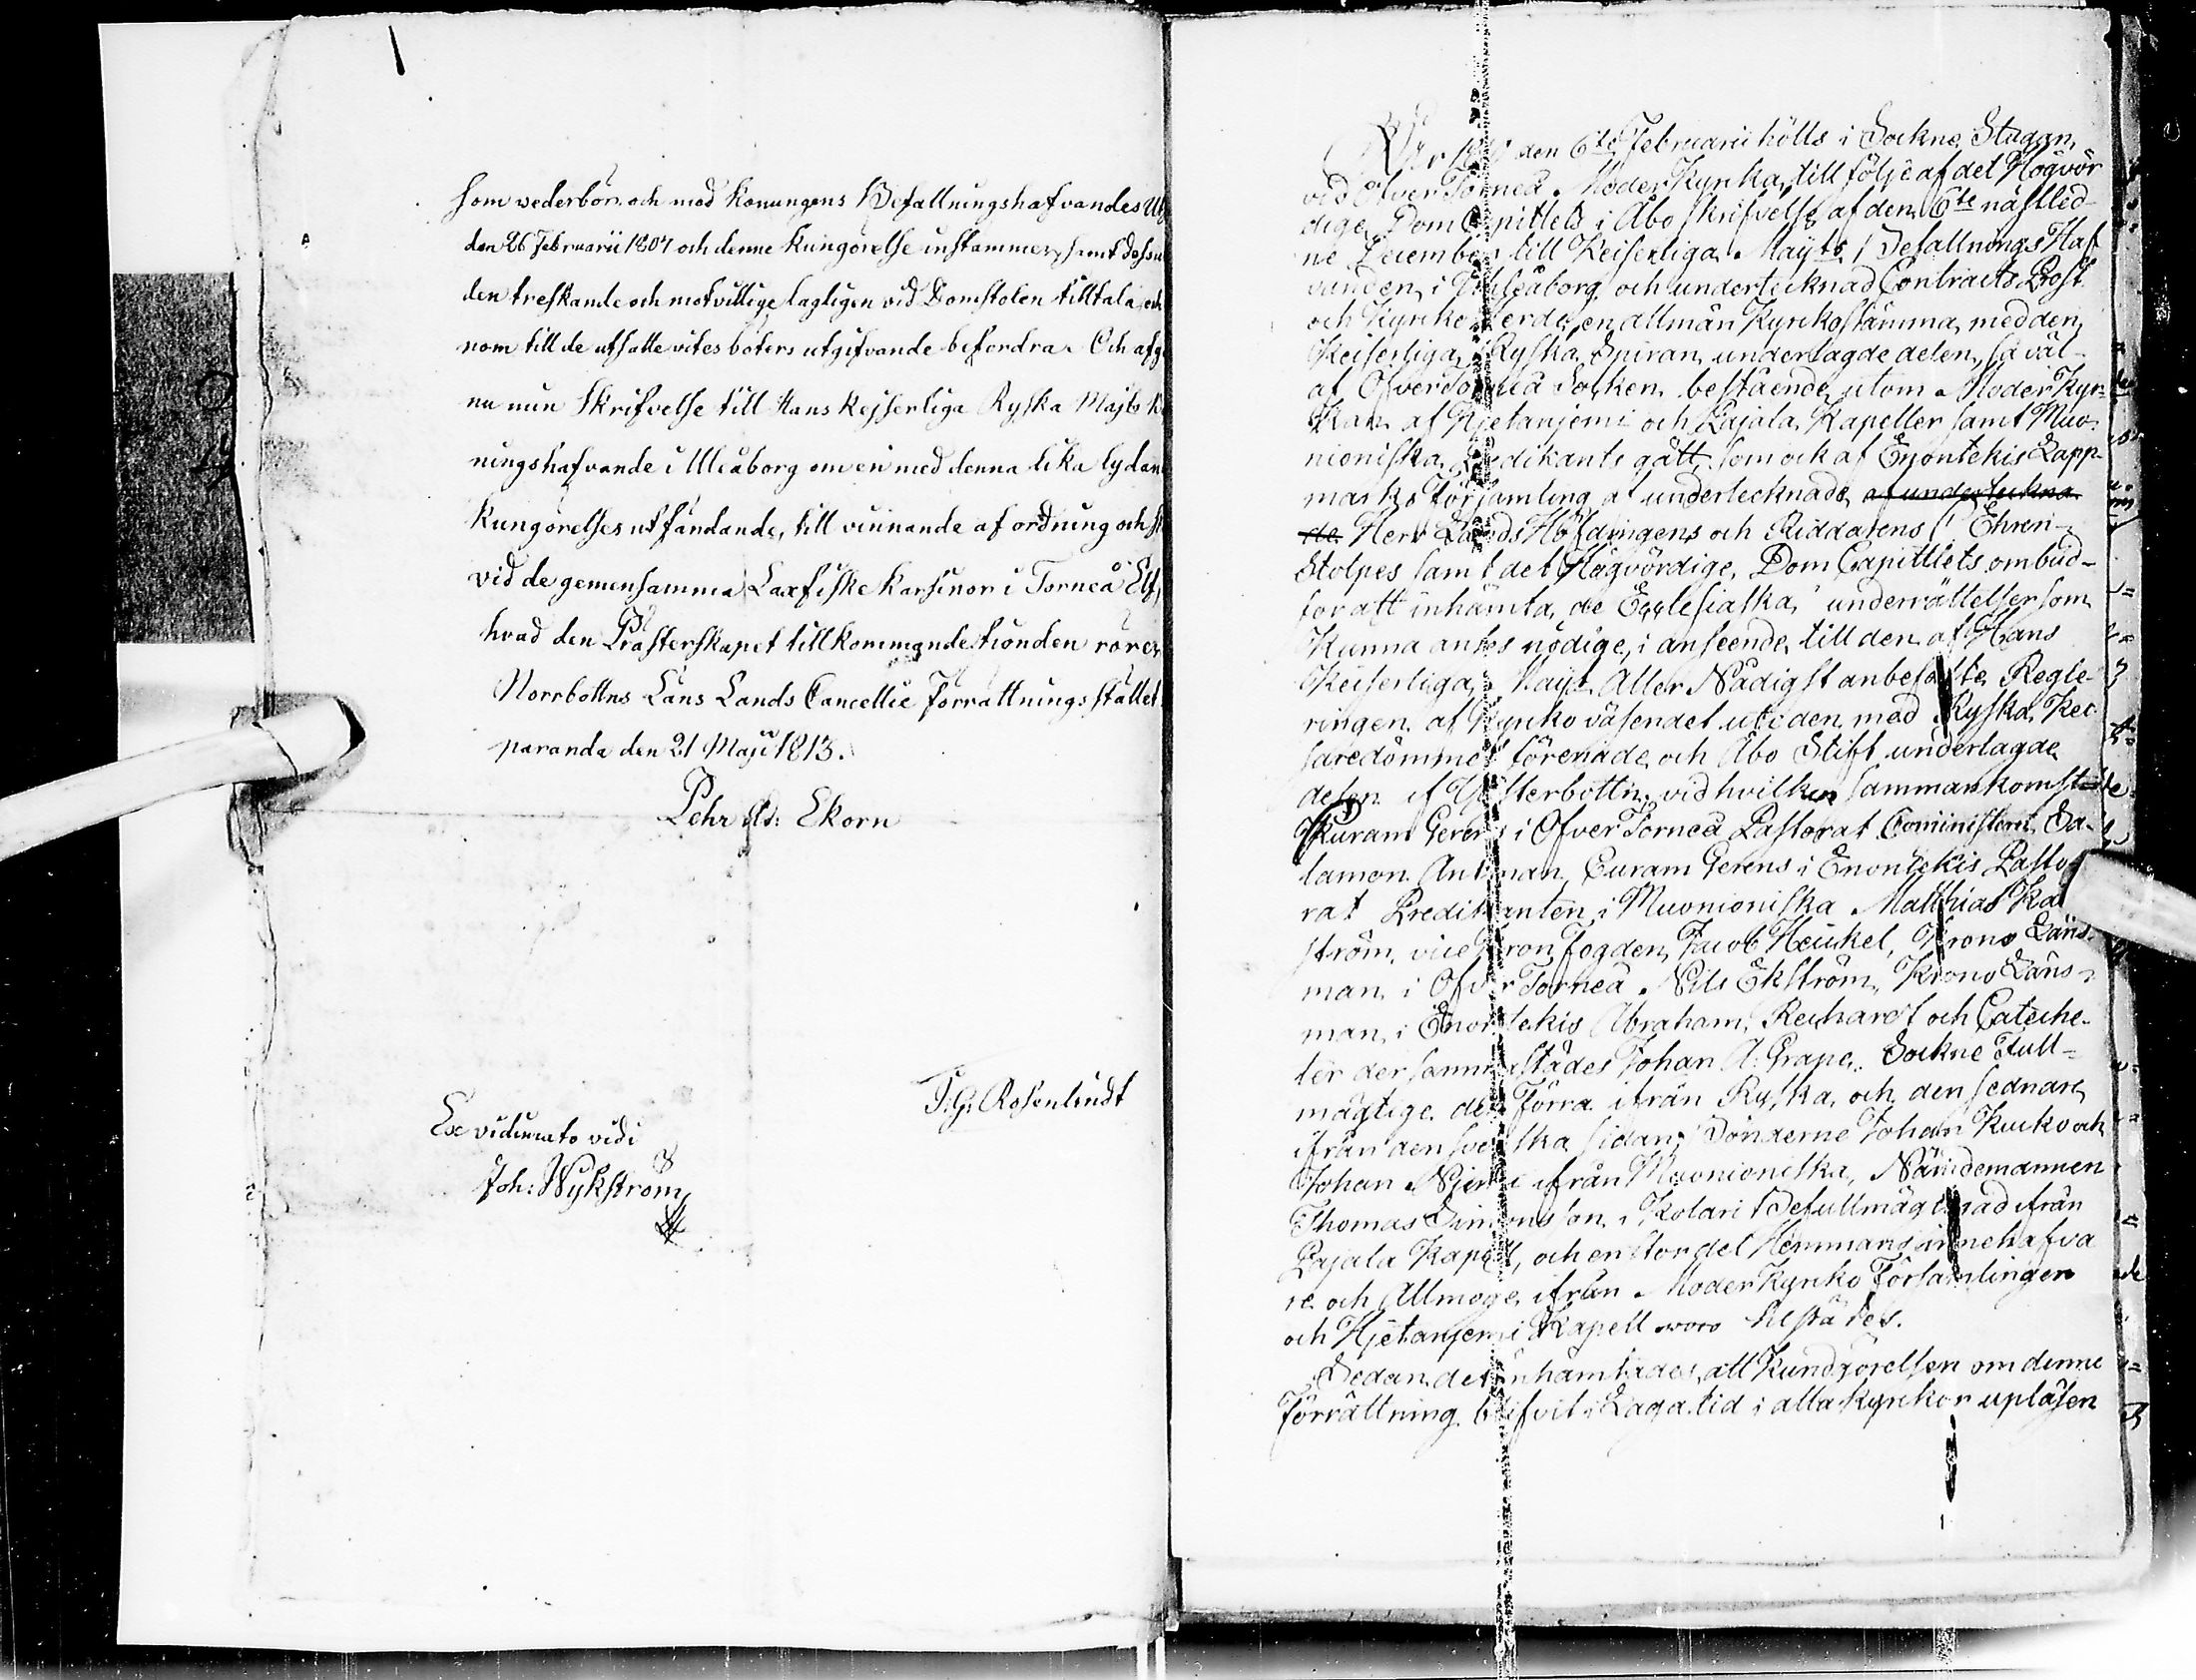 som wederbör, och med Konungens Befallningshafvandes
den 26 Februarii 1807 och denne Kungörelse instämmer, samt
den treskande och motvillige lagligen vid Domstolen tilltala, och
nom till de utsatte vites böters utgifvande befordra. Och
na min Skrifvelse till Hans Kejserliga Ryska Majts
ningshafvande i Uleåborg om en med denna lika
Kungörelses utfärdande, till vinnande af ordning och
vid de gemensamma Laxfiske Karsinor i Torneå Elf,
hvad den Prästerskapet tillkommande tionden rörer
Norrbottns Läns Lands Cancellie Förrättningsstället
paranda den 21 Maji 1813.
Pehr Ad: Ekorn
T. G. Rosenlindt
Ex vidimato vidi
Joh: Wykström
År den 6te Februarii hölts i Sockne Stugan,
vid Öfver Torneå Moder Kyrka, till följe af det Högvör
dige Dom Capittlets i Åbo skrifvelse af den 6te nästled-
ne December till Keiserliga Mayts Befallnings Haf
vanden i Uhleåborg och undertecknad Contracts Prost
och Kyrkoherde, en allmän Kyrkostämma, med den
Keiserliga Ryska Spiran underlagde delen, så väl
af Öfver Torneå Socken bestående utom Moder Kyr-
kan af Hjetanjemi och Pajala Kapeller samt Muo-
nioniska Predikants gäll, som ock af Enontekis Lapp-
marks Församling af undertecknade af underteckna
de Herr Lands Höfdingens och Riddarens Ehren-
Stolpes samt det Högvördige Dom Capittlets ombud-
för att inhämta de Ecclesiaska underrättelser som
Kunna anses nödige, i anseende till den af Hans
Keiserliga Mayt Aller Nådigst anbefalte Regle-
ringen af Kyrkoväsendet uti den med Ryska Kei-
saredömmet förenade och Åbo Stift underlagde
delen af Vesterbottn; vid hvilken sammankomst
Curam Gerens i Öfver Torneå Pastorat Comministern Sa-
lamon Antman, Curam Gerens i Enontekis Pasto
rat Predikanten i Muonioniska Matthias
ström, vice Kron Fogden Jacob Heickel, Krono Läns-
man i Öfver Torneå Nils Ekström, Krono Läns-
man i Enontekis Abraham Rechardt och Cateche-
ter dersammastädes Johan A: Grape, Sockne Full-
mägtige den Förra ifrån Ryska och den sednare
ifrån den svenska sidan; Bönderne Johan Kurko och
Johan Niemi ifrån Muonioniska, Nämdemannen
Thomas Simonsson i Kolari Befullmägtigad ifrån
Pajala Kapell, och en stor del Hemmans innehafva
re och Allmoge ifrån Moder Kyrko Församlingen
och Hjetanjemi Kapell woro tillstädes.
Sedan det inhämtades, att Kundgörelsen om denne
Förrättning blifvit i Laga tid i alla Kyrkor upläsen